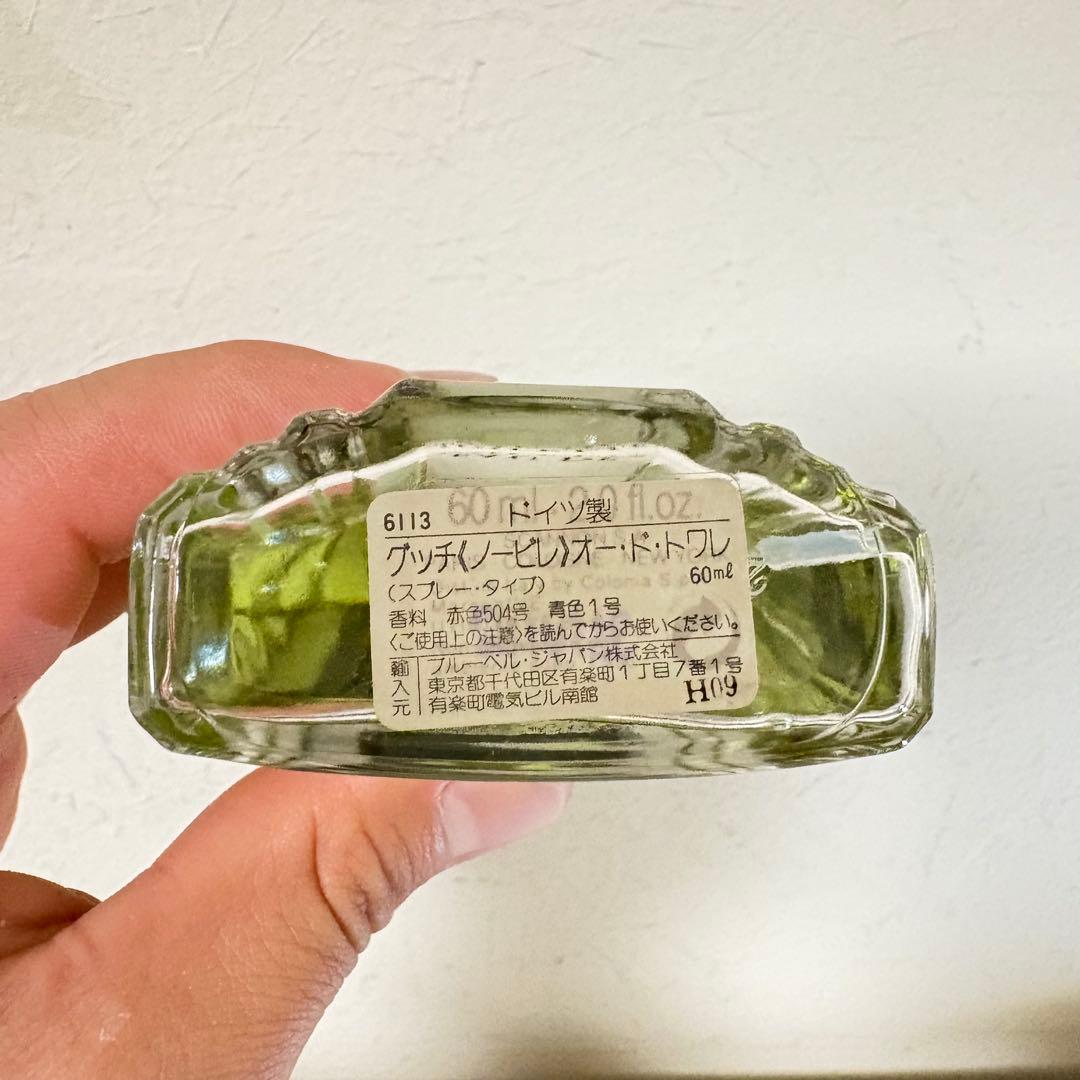 6113 ドイツ製
グッチ《ノービレ》オー・ド・トワレ
(スプレー・タイプ) 60ml
香料 赤色504号 青色1号
〈ご使用上の注意〉を読んでからお使いください。
輸入元 ブルーベル・ジャパン株式会社
東京都千代田区有楽町1丁目7番1号
有楽町電気ビル南館 H09
60 ml 2.0 fl.oz.
by Colonia S